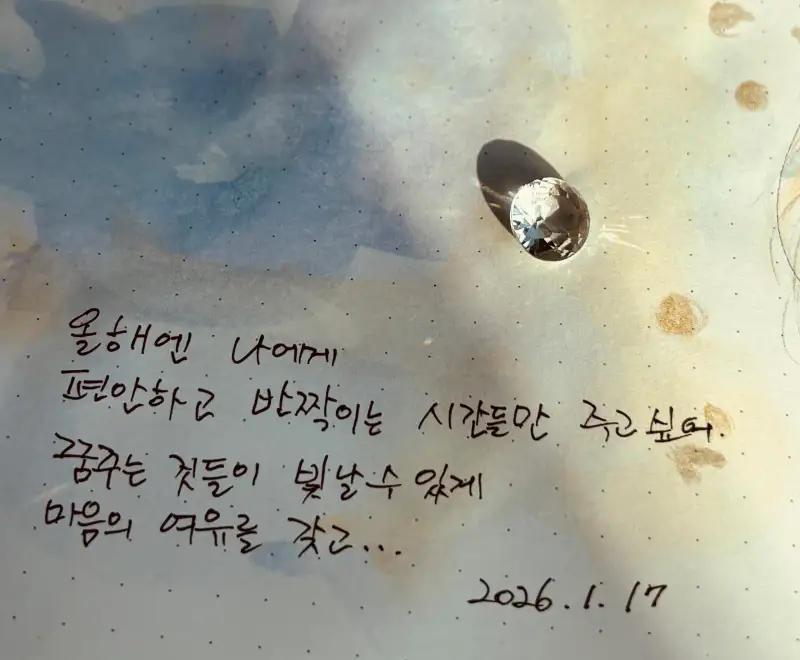 올해엔 나에게
편안하고 반짝이는 시간들만 주고 싶어.
꿈꾸는 것들이 빛날 수 있게
마음의 여유를 갖고...
2026.1.17